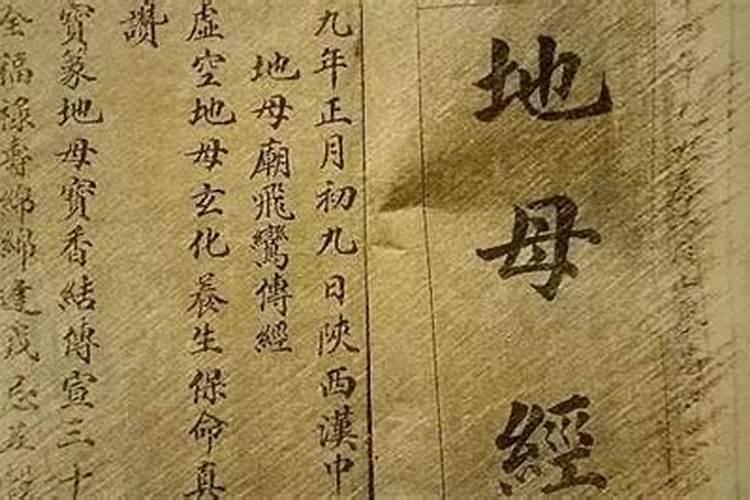 地母經
九年正月初九日陝西漢中
地母廟飛鸞傳經
虛空地母玄化養生保命真
讚
寶篆地母寶香結傳宣三十
全福祿壽綿綿達戊己